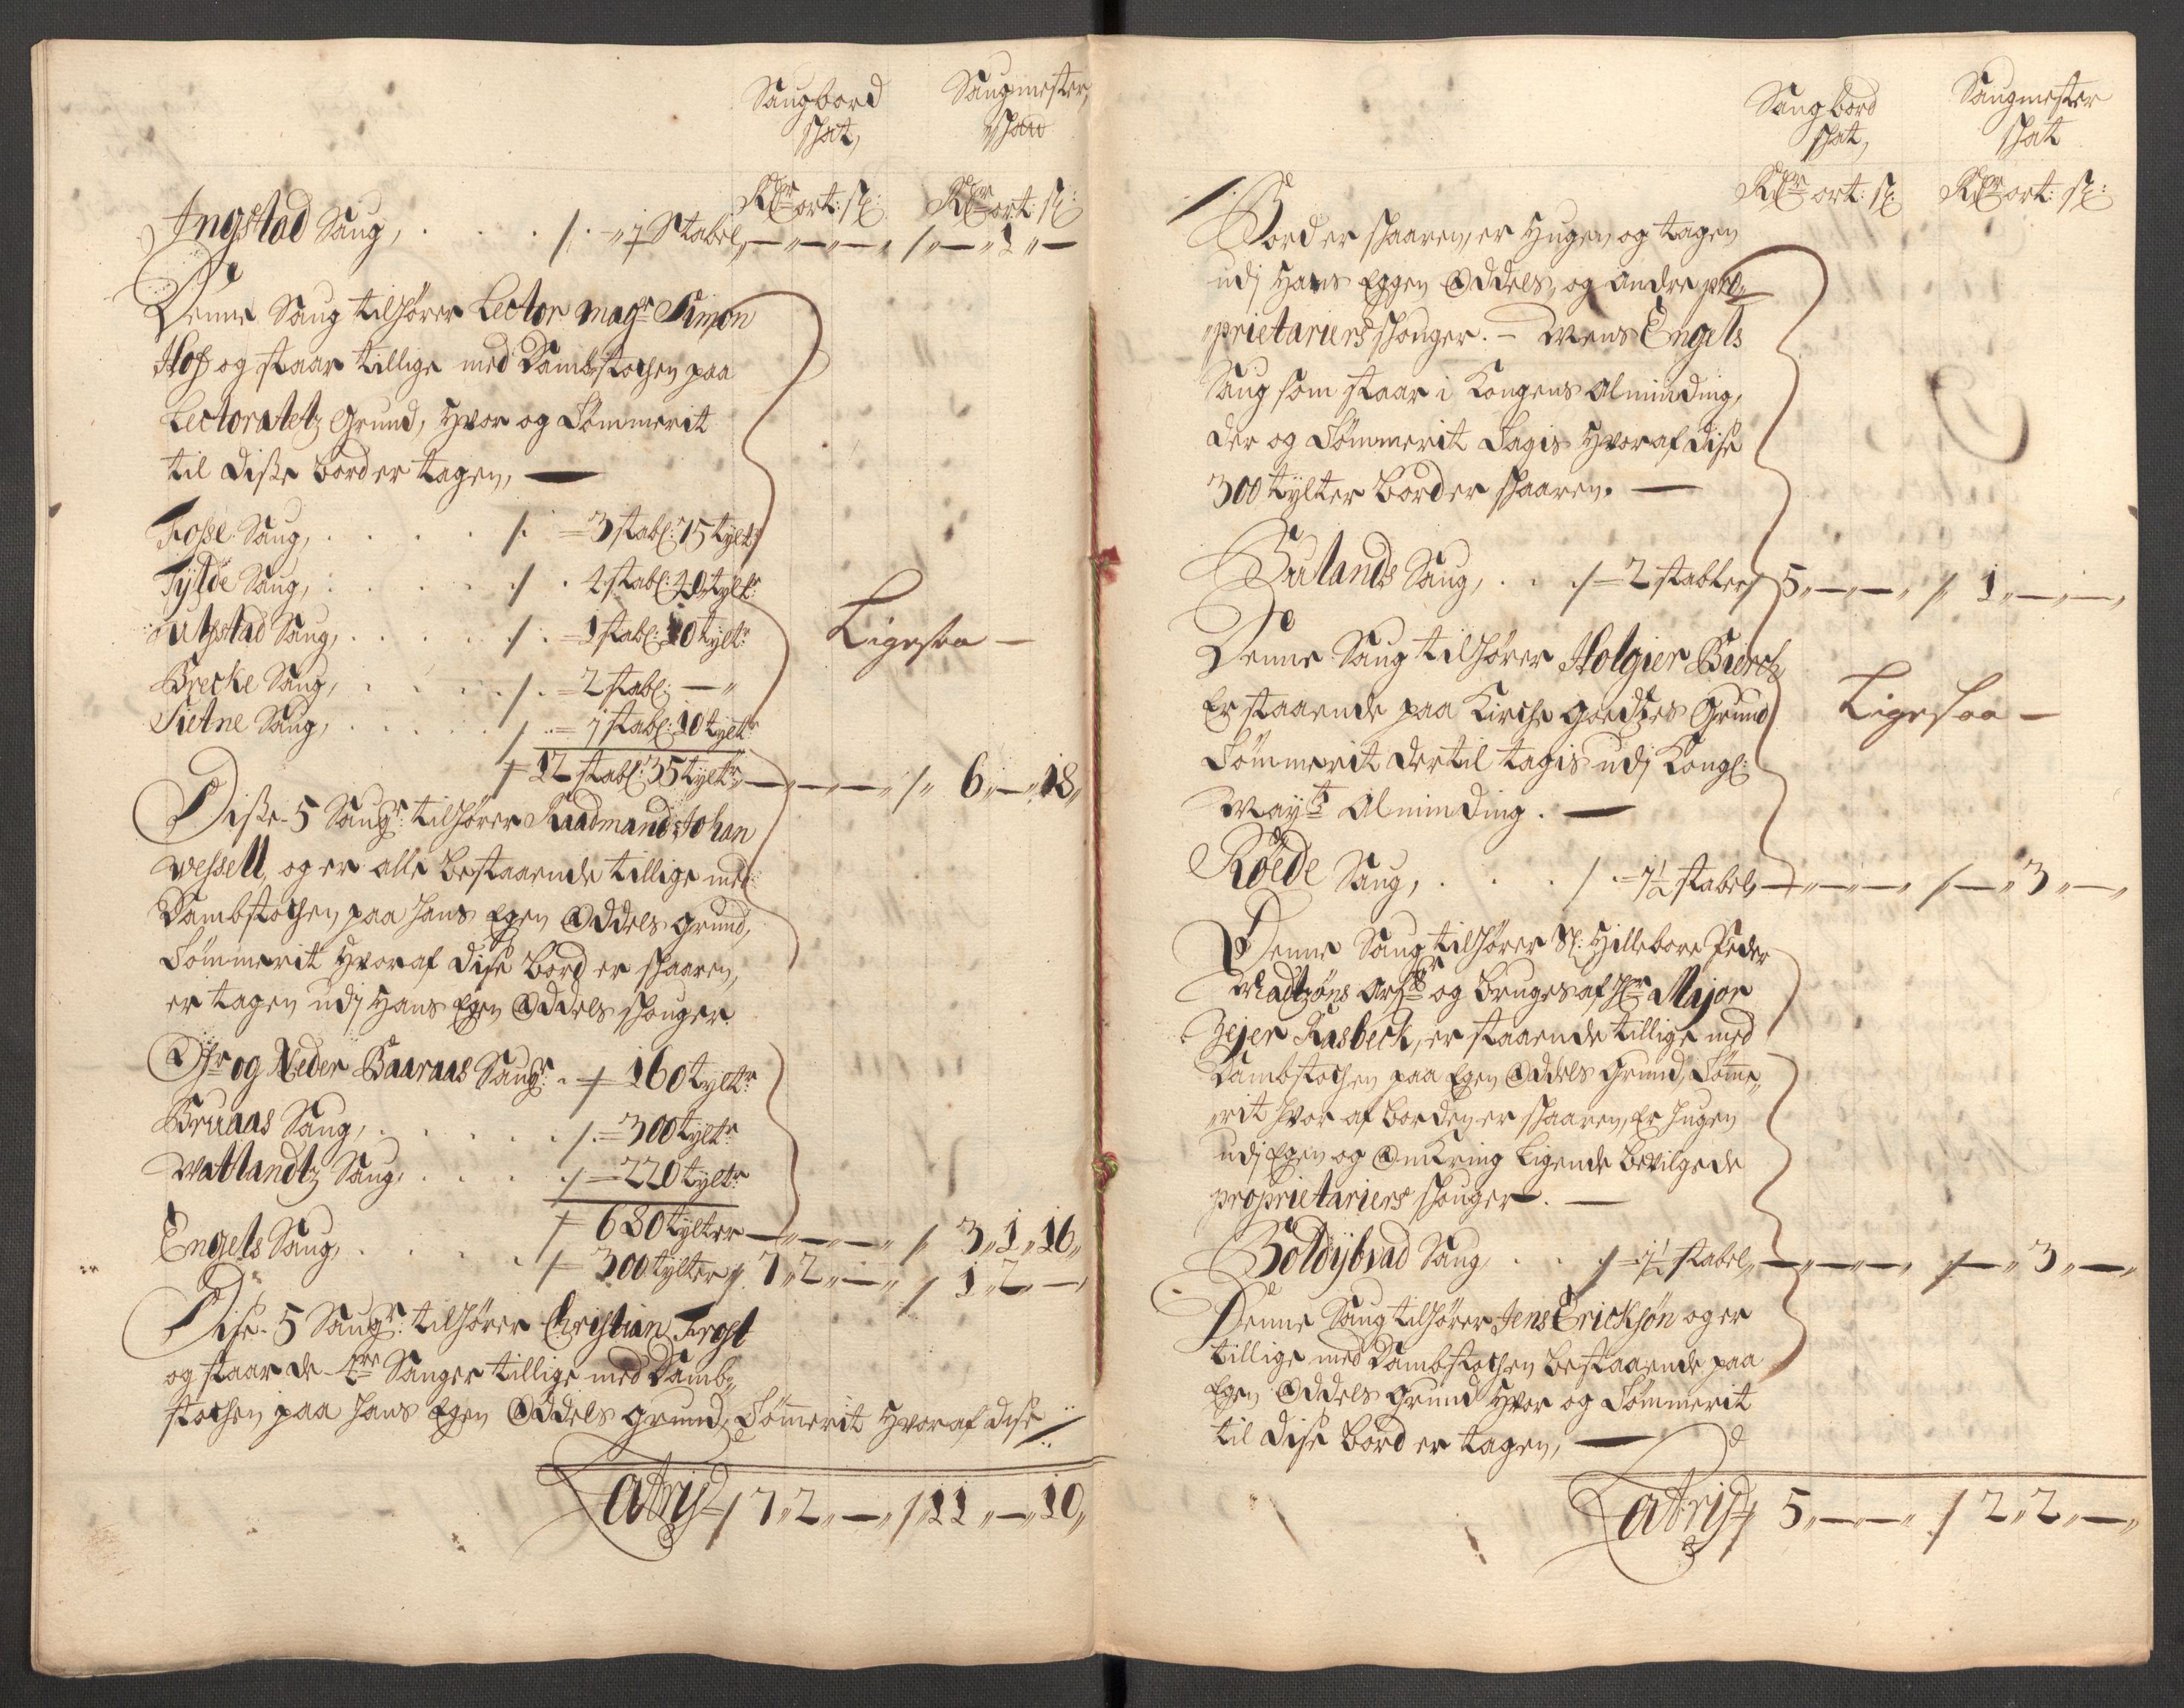 Saugbord Saugmester
skat, skat
Rdr ort: sk: Rdr ort: sk:
Ingstad Saug, . . . /. „ 1 Stabel, — „ — „ — / „ — „ 1 „ —
Denne Saug tilhører Lector Magr Simon
Hof og staar tillige med Dambstochen paa
Lectoratetz Grund, hvor og Tømmerit
til disse bord er tagen, —
Fosse Saug, . . . . /. = 3 stabl: 75 tylt:
Fylde Saug, . . . . / . 4 stabl: 40 tyltr:
Saug, . . . . /. = 1 stabl: 10 tyltr:
Brecke Saug, . . . . /. = 2 stabl: — „
Sietne Saug, . . . . / .. = 1 stabl: 10 tyltr
/ 12 stabl: 35 tyltr: — „ — „ — „ / „ 6 „ — „ 18 „
Ligesaa —
Disse 5 Saugr: tilhører Raadmand Johan
Wessell, og er alle bestaaende tillige med
Dambstochen paa hans Egen Oddels grund,
Tømmerit hvoraf dise bord er skaaren,
er tagen udj hans Egen Oddels skouger.
Øfr og Neder Baaraas Saugr: . / 160 tyltr:
Bruaas Saug, . . . . . /. = 300 tyltr:
Watlandtz Saug, . . . . / = 220 tyltr
/ 680 tylter — „ — „ — „ / 3 „ 1 „ 16 „
Engels Saug, . . . . / = 300 tylter / 7 „ 2 „ — „ / 1 „ 2 „ —
Dise 5 Saugr: tilhører Christian Frost
og staar de 4re Sauger tillige med Damb„
stochen paa hans Egen Oddels grund, Tømerit hvoraf dise /
Latris / 7 „ 2 „ — „ / 11 „ — „ 10 „
Saugbord Saugmester
skat, skat
Rdr ort: sk: Rdr ort: sk:
/. Bord er skaaren, er hugen og tagen
udj hans Eggen Oddels, og andre pro„
„prietariers skouger. — Mens Engels
Saug som staar i Kongens Alminding,
der og Tømmerit tagis hvoraf dise
300 tylter bord er skaaren. —
Bulands Saug, . . ./ = 2 stabler / 5 „ — „ — „ / „ 1 „ — „ — „
Denne Saug tilhører Holgier Bierck
Er staaende paa Kirche goedtzes Grund
Tømmerit dertil tagis udj Kongl:
Mayts Alminding. —
Ligesaa —
Röede Saug, . . . / . = 1½ stabel, — „ — „ — „ / — „ 3 „ — „
Denne Saug tilhører Sl: Hillebore Peder
Madtzøns og bruges af Hr Major
Zejer Rasbech, er staaende tillige med
Dambstochen paa Egen Oddels Grund, Tømme„
„rit hvor af borden er skaaren, Er hugen
udj Egen og Omkring ligende bevilgede
proprietariers skouger. —
Boldybrad Saug, . . . / = 1½ stabel, — „ — „ — „ / — „ 3 „ — „
Denne Saug tilhører Jens Ericksøn og er
tillige med Dambstochen bestaaende paa
Egen Oddels grund hvor og Tømmerit
til dise bord er tagen, —
Latris / 5 „ — „ — „ / 2 „ 2 „ — „